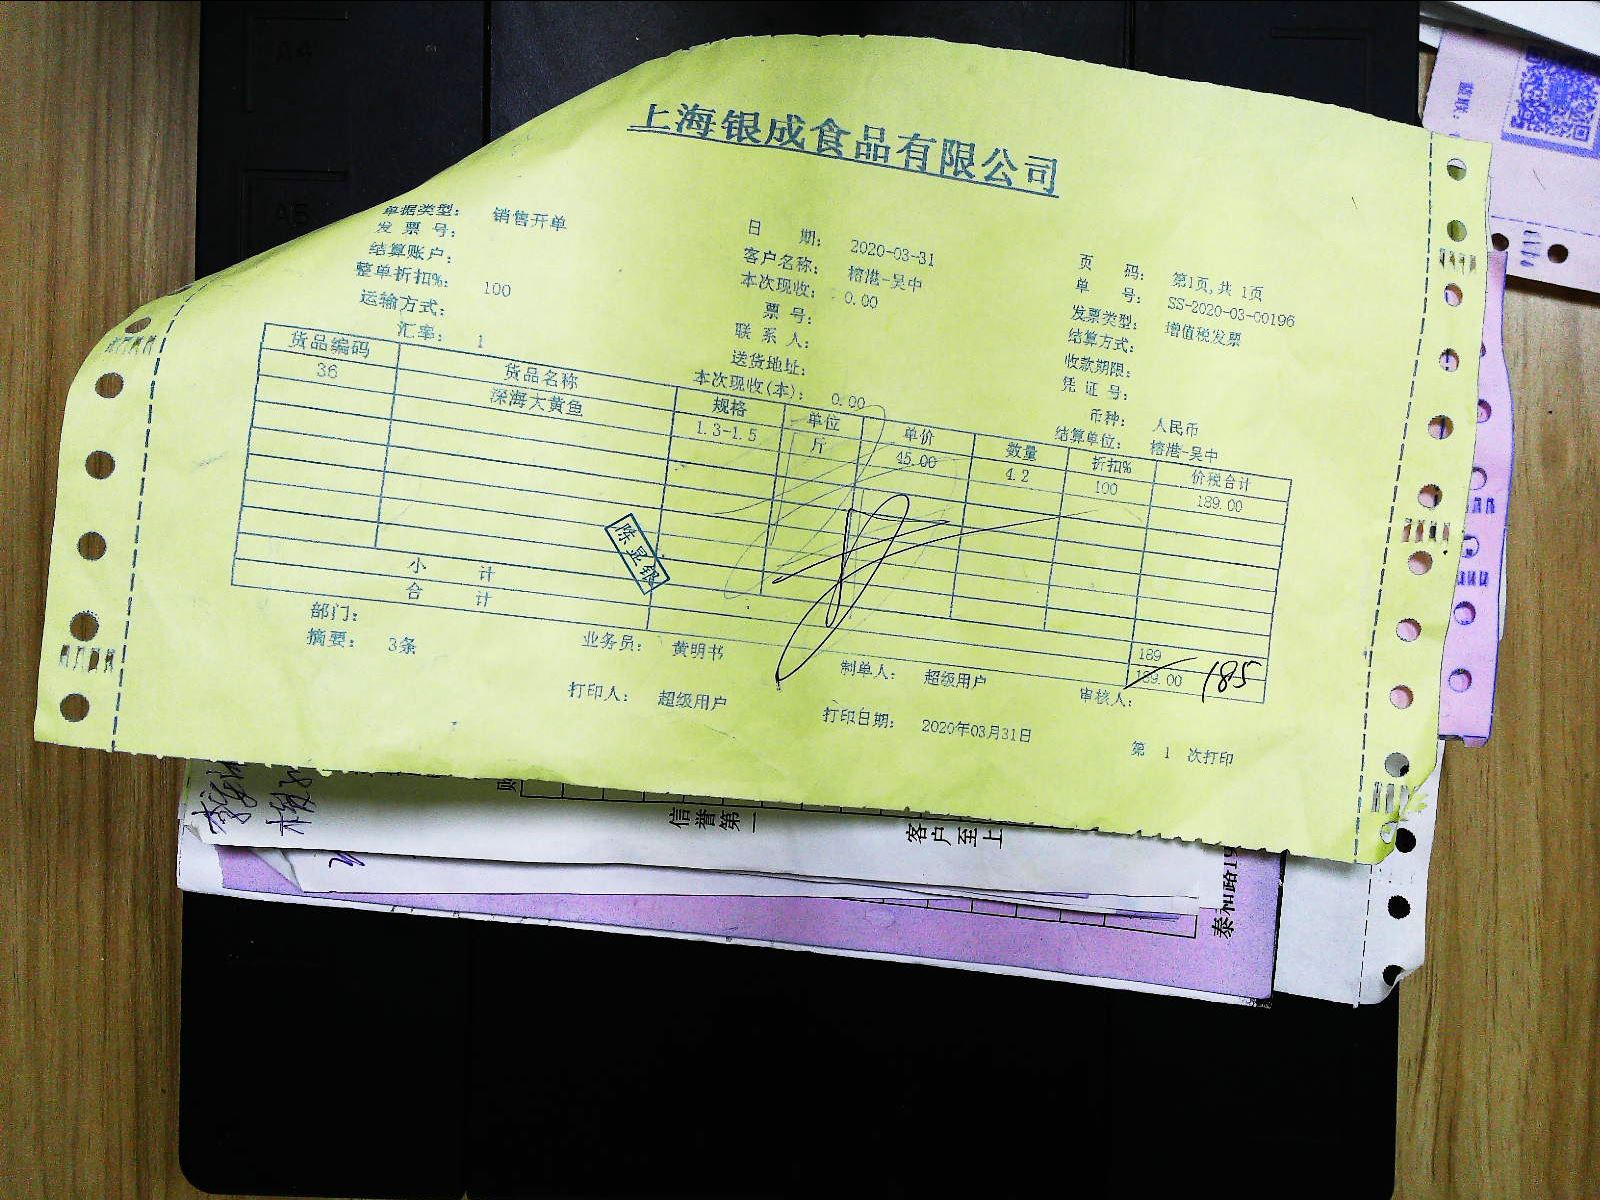 上海银成食品有限公司
单据类型： 销售开单 日 期： 2020-03-31 页 码： 第1页,共 1页
发 票 号： 客户名称： 榕港-吴中 单 号： SS-2020-03-00196
结算账户： 本次现收： 0.00 发票类型： 增值税发票
整单折扣%： 100 票 号： 结算方式：
运输方式： 联 系 人： 收款期限：
汇率： 1 送货地址： 凭 证 号：
本次现收(本)： 0.00 币种： 人民币
结算单位： 榕港-吴中
货品编码 货品名称 规格 单位 单价 数量 折扣% 价税合计
36 深海大黄鱼 1.3-1.5 斤 45.00 4.2 100 189.00
陈显银
小 计 189
合 计 189.00 185
部门： 业务员： 黄明书 制单人： 超级用户 审核人：
摘要： 3条
打印人： 超级用户 打印日期： 2020年03月31日 第 1 次打印
信誉第一
客户至上
泰和路
A4
A5